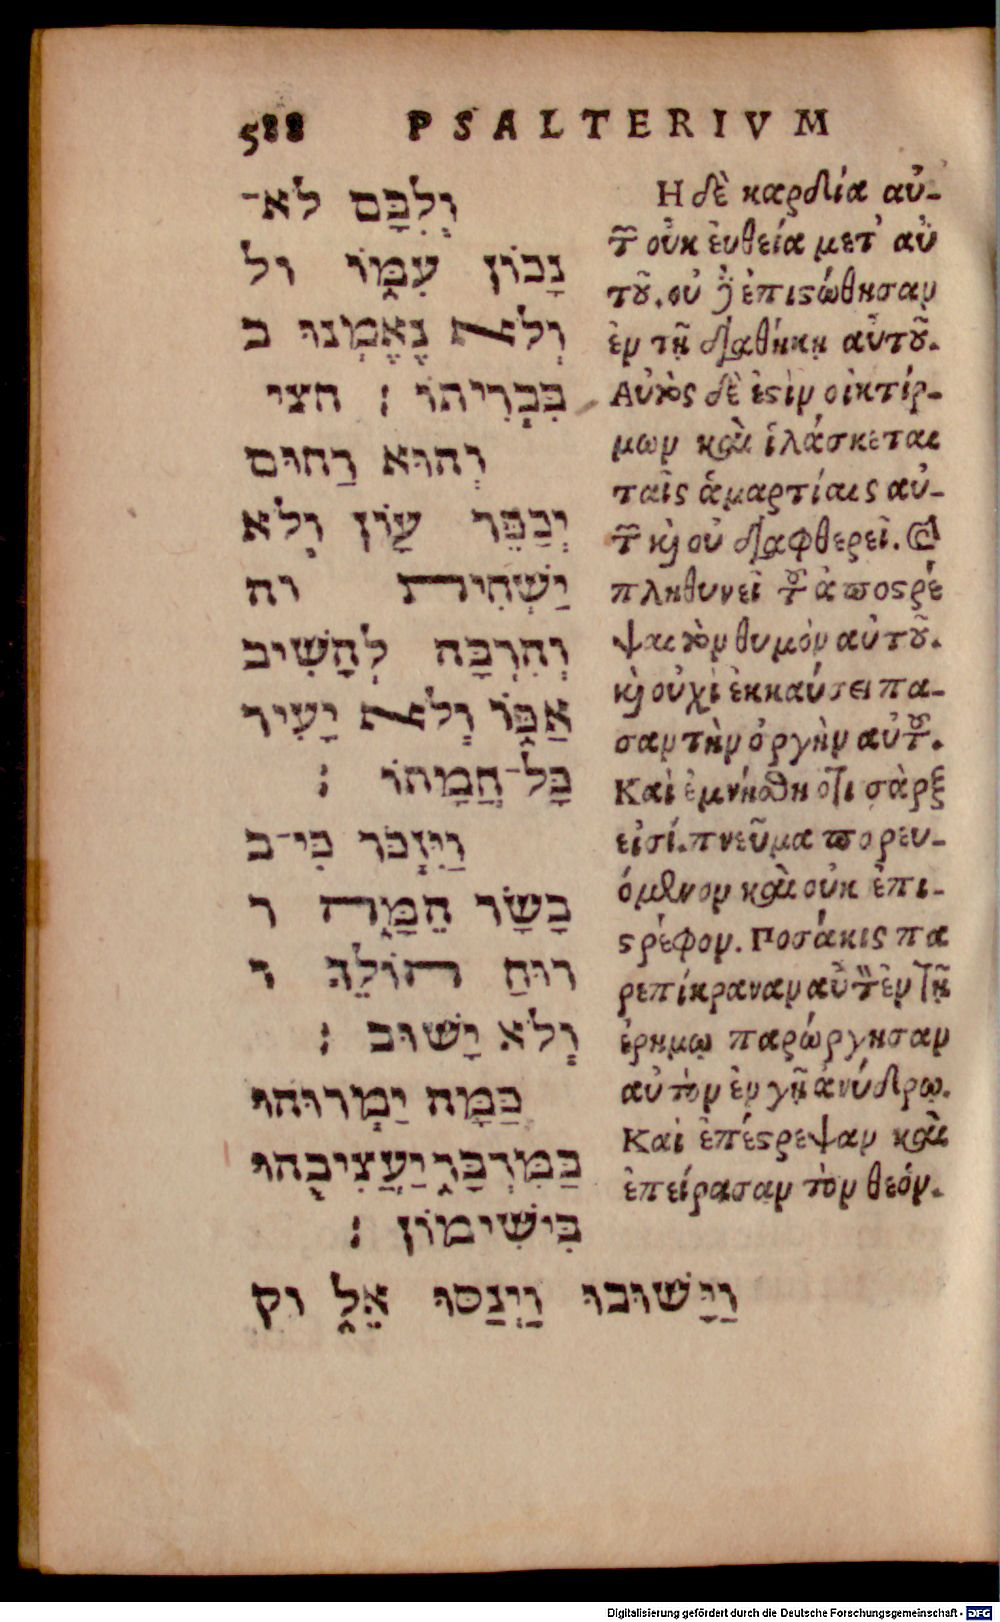 588 PSALTERIVM
וְלִבָּם לֹא־
נָכוֹן עִמּוֹ ול
וְלֹא נֶאֶמְנוּ ב
בִּבְרִיתוֹ׃ חצי
וְהוּא רַחוּם
יְכַפֵּר עָוֹן וְלֹא
יַשְׁחִית וה
וְהִרְבָּה לְהָשִׁיב
אַפּוֹ וְלֹא יָעִיר
כָּל־חֲמָתוֹ׃
וַיִּזְכֹּר כִּי־ב
בָשָׂר הֵמָּה ר
רוּחַ הוֹלֵךְ ו
וְלֹא יָשׁוּב׃
כַּמָּה יַמְרוּהוּ
בַּמִּדְבָּר יַעֲצִיבֻהוּ
בִּישִׁימוֹן׃
וַיָּשׁוּבוּ וַיְנַסּוּ אֵל וק
Η δὲ καρδία αὐ-
τῶν οὐκ ἐυθεία μετ' αὐ
τοῦ. οὐδ' ἐπιστώθησαν
ἐν τῇ διαθήκῃ αὐτοῦ.
Αὐτὸς δὲ ἐστὶν οἰκτίρ-
μων καὶ ἱλάσκεται
ταῖς ἁμαρτίαις αὐ-
τῶν καὶ οὐ διαφθερεῖ. Καὶ
πληθυνεῖ τοῦ ἀποστρέ
ψαι τὸν θυμὸν αὐτοῦ.
καὶ οὐχὶ ἐκκαύσει πα-
σαν τὴν ὀργὴν αὐτοῦ.
Καὶ ἐμνήσθη ὅτι σὰρξ
εἰσί. πνεῦμα πορευ-
όμενον καὶ οὐκ ἐπι-
στρέφον. Ποσάκις πα
ρεπίκραναν αὐτὸν ἐν τῇ
ἐρημῳ παρώργησαν
αὐτὸν ἐν γῇ ἀνύδρῳ.
Καὶ ἐπέστρεψαν καὶ
ἐπείρασαν τὸν θεόν.
Digitalisierung gefördert durch die Deutsche Forschungsgemeinschaft - DFG